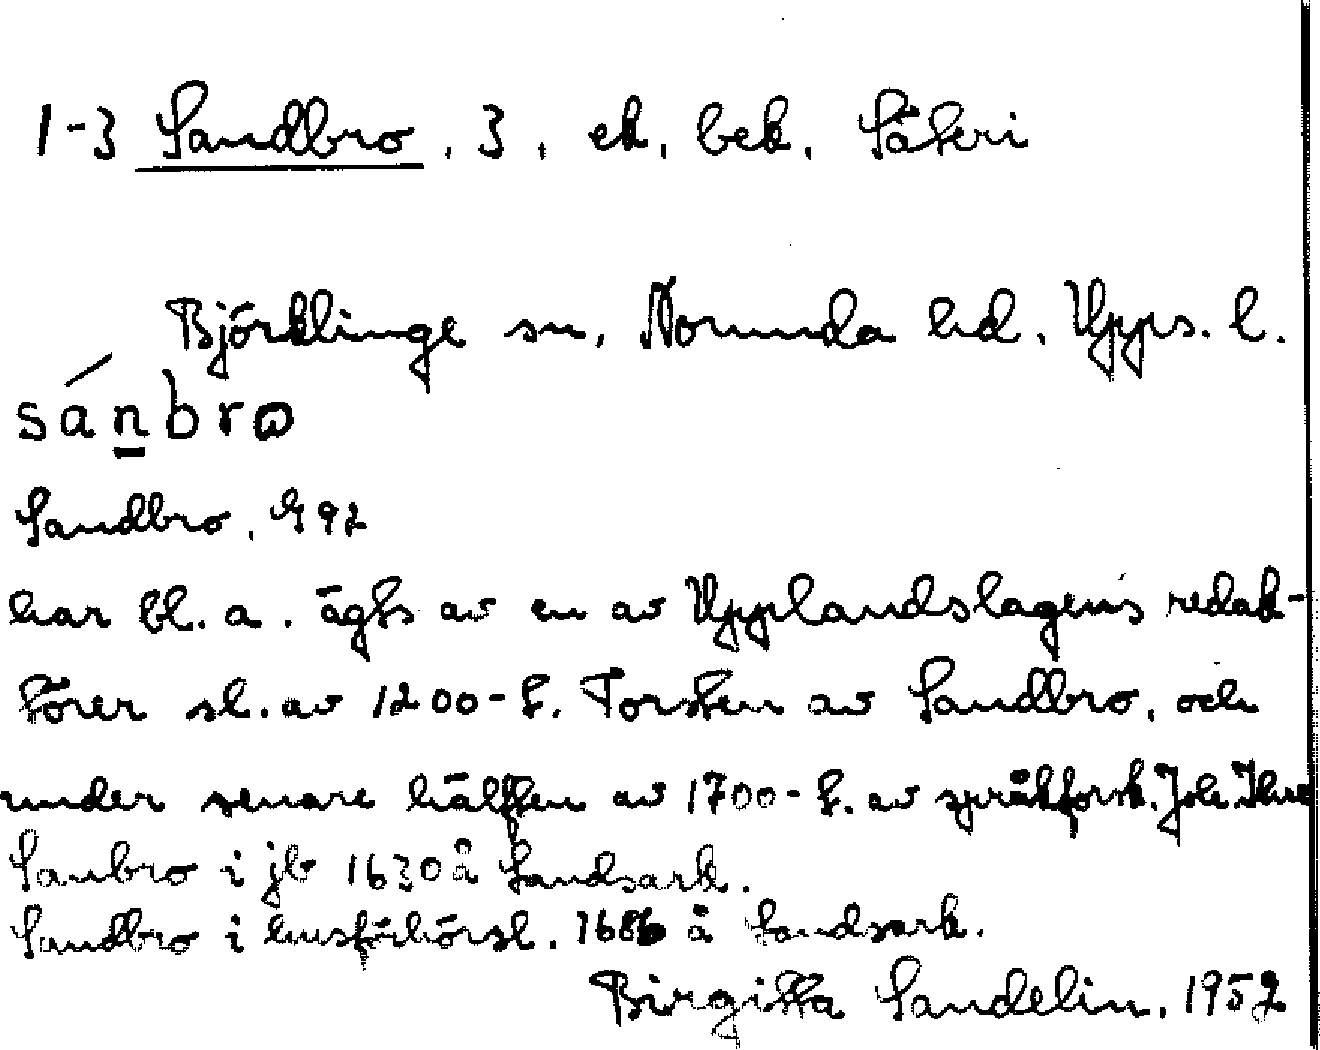 1-3 Sandbro, 3, ek, bek, Säteri
Björklinge sn, Norunda hd. Upps. l.
sánbrω
Sandbro, G 92
har bl. a. ägts av en av Upplandslagens redak-
törer sl. av 1200-t. Torsten av Sandbro, och
under senare hälften av 1700-t. av språkforsk. Joh. Ihre
Sanbro i jb 1630 å Landsark.
Sandbro i husförhörsl. 1686 å Landsark.
Birgitta Sandelin, 1952